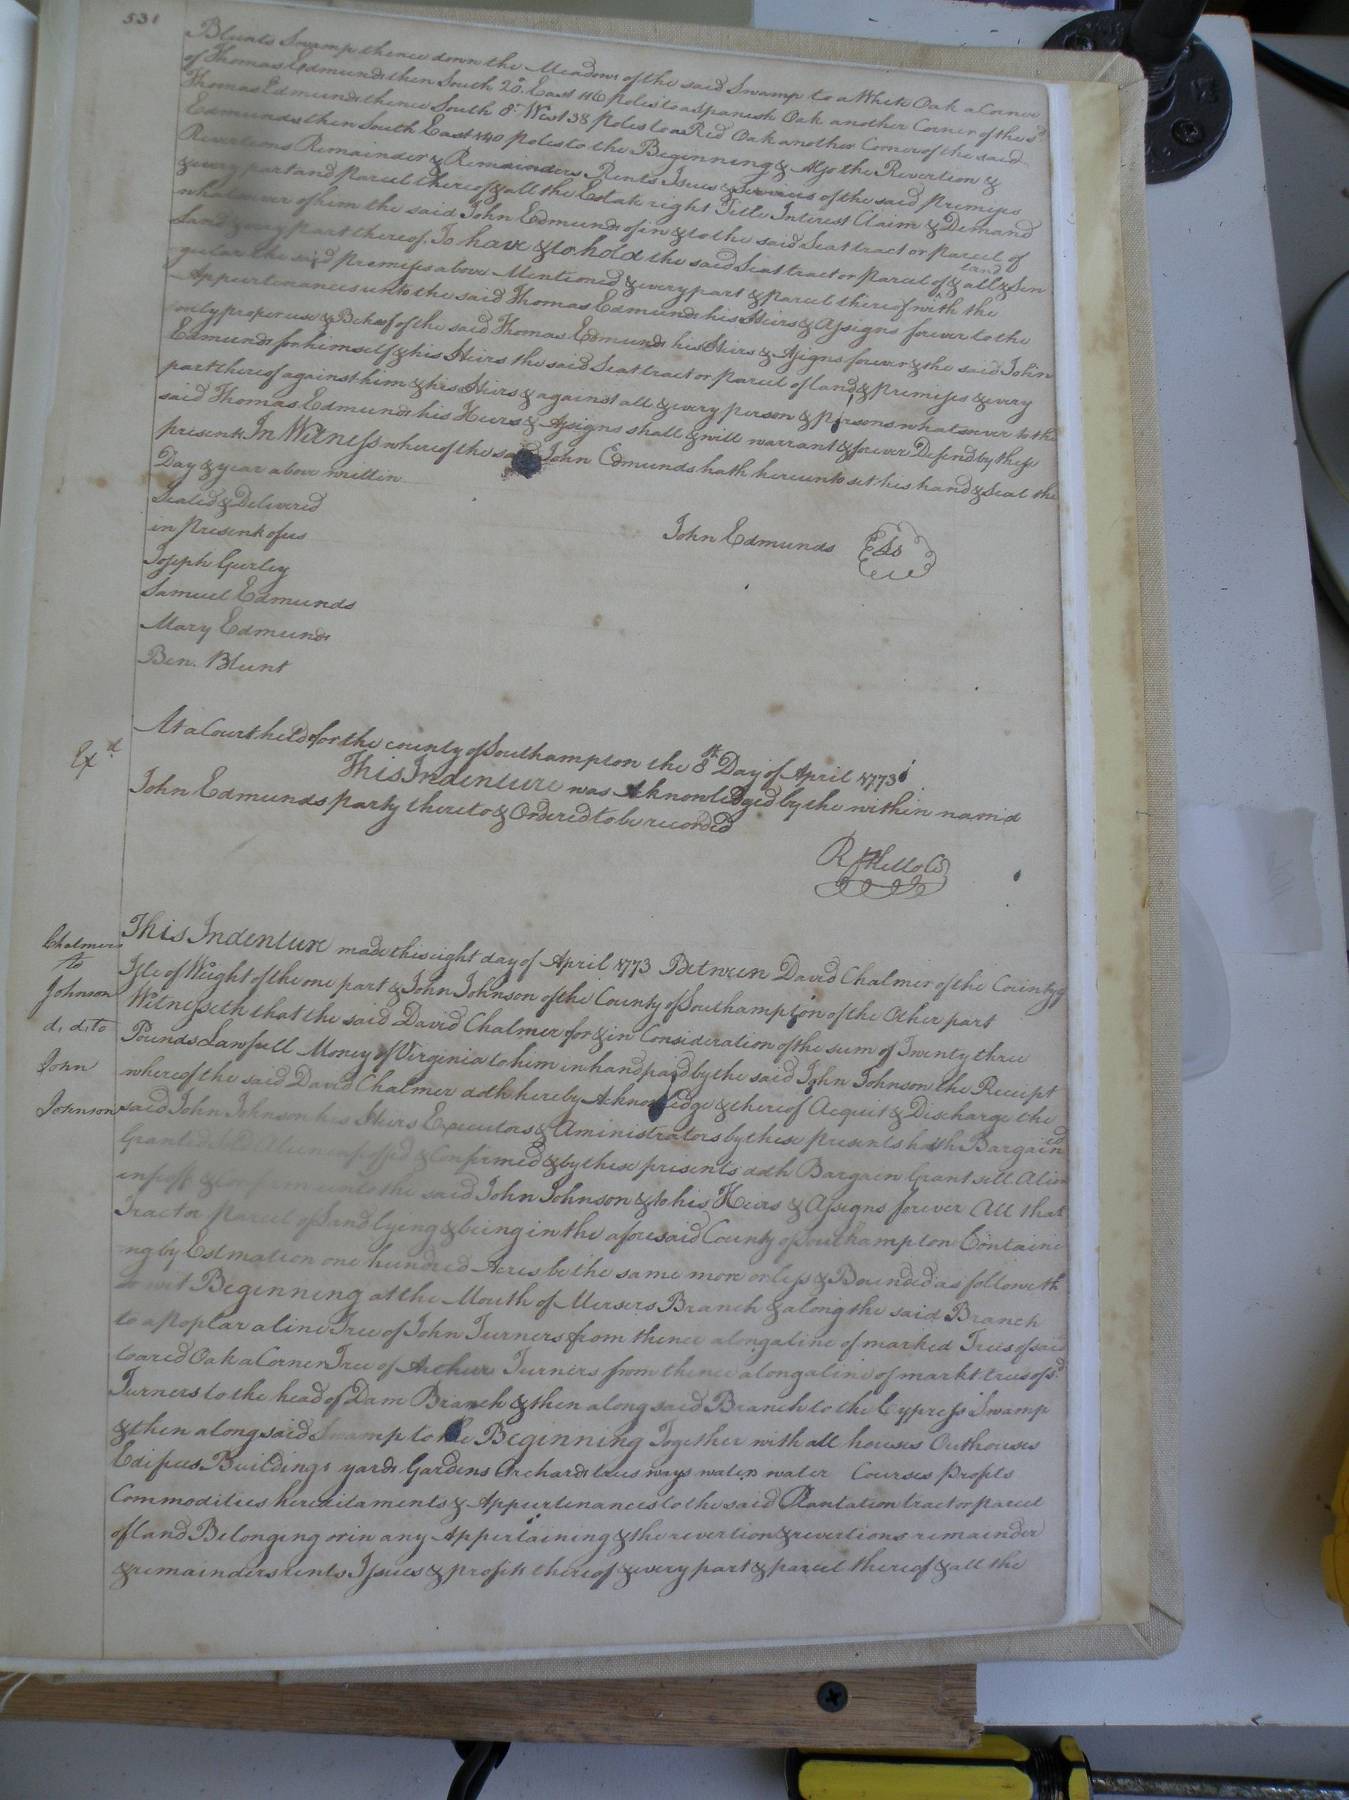 531
Blunts Swamp thence down the Meadows of the said Swamp to a White Oak a Corner
of Thomas Edmunds then South 20° East 116 Poles to a Spanish Oak another Corner of the sd
Thomas Edmunds thence South 8° West 38 Poles to a Red Oak another Corner of the said
Edmunds then South East 140 Poles to the Beginning & Also the Revertion &
Revertions Remainder & Remainders Rents Issues & Services of the said Premises
& every part and Parcel thereof & all the Estate right Title Interest Claim & Demand
whatsoever of him the said John Edmunds of in & to the said Seat tract or Parcel of
Land & every part thereof To have & to hold the said Seat tract or Parcel of land & all & Sin
gular the said Premises above Mentioned & every part & parcel thereof with the
Appurtenances unto the said Thomas Edmunds his Heirs & Assigns forever to the
only proper use & Behoof of the said Thomas Edmunds his Heirs & Assigns forever & the said John
Edmunds for himself & his Heirs the said Seat tract or parcel of land & premises & every
part thereof against him & his Heirs & against all & every person & persons whatsoever to the
said Thomas Edmunds his Heirs & Assigns shall & will warrant & forever Defend by these
presents In Witness whereof the said John Edmunds hath hereunto set his hand & Seal the
Day & year above written
Sealed & Delivered
in Presents of us
John Edmunds Ls
Joseph Gurley
Samuel Edmunds
Mary Edmunds
Ben. Blunt
Exd
At a Court held for the county of Southampton the 8th Day of April 1773
This Indenture was Acknowledged by the within nam'd
John Edmunds party thereto & Ordered to be recorded
R Kello
Chalmers
to
Johnson
d, d, to
John
Johnson
This Indenture made this eight day of April 1773 Between David Chalmer of the County of
Isle of Wight of the one part & John Johnson of the County of Southampton of the Other part
Witnesseth that the said David Chalmer for & in Consideration of the sum of Twenty three
Pounds Lawfull Money of Virginia to him in hand paid by the said John Johnson the Receipt
whereof the said David Chalmer doth hereby Acknowledge & thereof Acquit & Discharge the
said John Johnson his Heirs Executors & Aministrators by these presents hath Bargained
Granted Sold & Confirmed & by these presents doth Bargain Grant sell Alien
infeoff & confirm unto the said John Johnson & to his Heirs & Assigns forever All that
Tract or Parcel of Land lying & being in the aforesaid County of Southampton Containi
ng by Estmation one hundred Acres be the same more or less & Bounded as followeth
to wit Beginning at the Mouth of Mersers Branch & along the said Branch
to a Poplar a line Tree of John Turners from thence along a line of marked Trees of said
to a red Oak a Corner Tree of Arthur Turners from thence along a line of markt trees of sd
Turners to the head of Dam Branch & then along said Branch to the Cypress Swamp
& then along said Swamp to the Beginning Together with all houses Outhouses
Edifices Buildings yards Gardens Orchards trees ways waters water Courses Profits
Commodities hereditaments & Appurtenances to the said Plantation tract or parcel
of land Belonging or in any Appertaining & the revertion & revertions remainder
& remainders rents Issues & profits thereof & every part & parcel thereof & all the